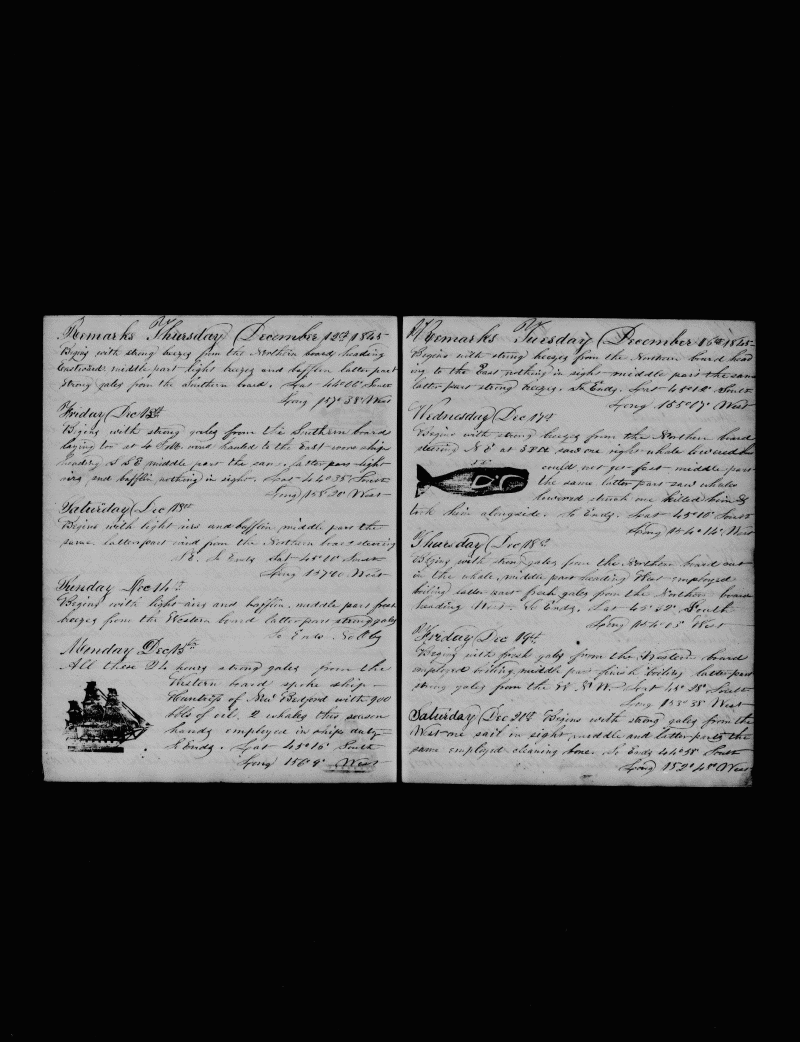 Remarks Thursday December 12th 1845
Begins with strong breezes from the Northern board heading
Eastward middle part light breezes and bafflen latter part
strong gales from the Southern board. Lat 44°00' South
Long 157°38' West
Friday Dec 13th
Begins with strong gales from the Southern board
laying too at 4 P.M. wind hauled to the East wore ship
heading S S E middle part the same latter part light
airs and bafflin nothing in sight. Lat 44°35' South
Long 158°20' West
Saturday Dec
Begins with light airs and bafflin middle part the
same latter part wind from the Northern board steering
N E. So Ends Lat 45°10' South
Long West
Sunday Dec 14th
Begins with light airs and bafflin. middle part fresh
breezes from the Western board latter part strong gales
So Ends No Obs
Monday Dec 15th
All these 24 hours strong gales from the
Western board spoke ship
Huntress of New Bedford with 900
bbls of oil. 2 whales this season
hands employed in ships duty
So Ends. Lat 45°16' South
Long 156°9' West
Remarks Tuesday December 16th 1845
Begins with strong breezes from the Northern board head
ing to the East nothing in sight middle part the same
latter part strong breezes. So Ends. Lat 45°12' South
Long 155°17' West
Wednesday Dec 17th
Begins with strong breezes from the Northern board
steering N E at saw one right whale lowered but
could not get fast middle part
the same latter part saw whales
lowered struck one killed him &
took him alongside. So Ends. Lat 45°10' South
Long 154°14' West
Thursday Dec 18th
Begins with strong gales from the Northern board cut
in the whale, middle part heading West employed
boiling latter part fresh gales from the Northern board
heading West. So Ends. Lat 45°02' South
Long 154°05' West
Friday Dec 19th
Begins with fresh gales from the Western board
employed boiling middle part finish boiling latter part
strong gales from the W. N. W. Lat 45°18' South
Long 153°38' West
Saturday Dec 20th Begins with strong gales from the
West one sail in sight, middle and latter parts the
same employed cleaning bone. So Ends 44°58' South
Long 152°48' West